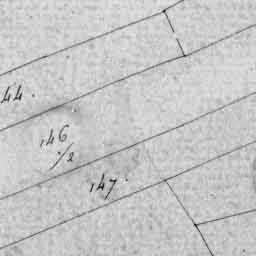 44.
146
/2
147.